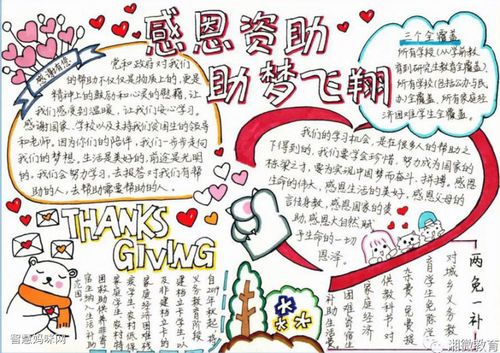 感恩资助
助梦飞翔
感谢有您
党和政府对我们
的帮助不仅仅是物质上的,更是
精神上的鼓励和心灵的慰藉,让
我们感受到温暖,让我们安心学习。
感谢国家、学校以及支持我们资困生的领导
和老师,因为你们的陪伴,我们一步步走向
我们的梦想。生活是美好的,前途是光明
的,我们会努力学习,去报答对我们有帮
助的人,去帮助需要帮助的人。
三个全覆盖
所有学校(从学前教
育到研究生教育全覆盖),
所有学校(包括公办与民
办)全覆盖,所有家庭经
济困难学生全覆盖。
我们的学习机会,是在很多人的帮助之
下得到的,我们要学会珍惜,努力成为国家的
栋梁之才,要为实现中国梦而奋斗、拼搏。感恩
生命的伟大,感恩生活的美好,感恩父母的
言传身教,感恩国家的资
助,感恩大自然赋
予生命的一切
恩泽。
THANKS
GIVING
两免一补
对城乡义务教
育学生免除学
杂费、免费提
供教科书,对
家庭经济
困难寄宿生
补助生活费
自2019年秋起将
义务教育阶段
建档立卡学生以
及非建档立卡的
家庭经济困难残
疾学生、农村低保
家庭学生、农村特
困救助供养学生等
宿生纳入生活补助
范围。
智慧妈咪网
湘微教育